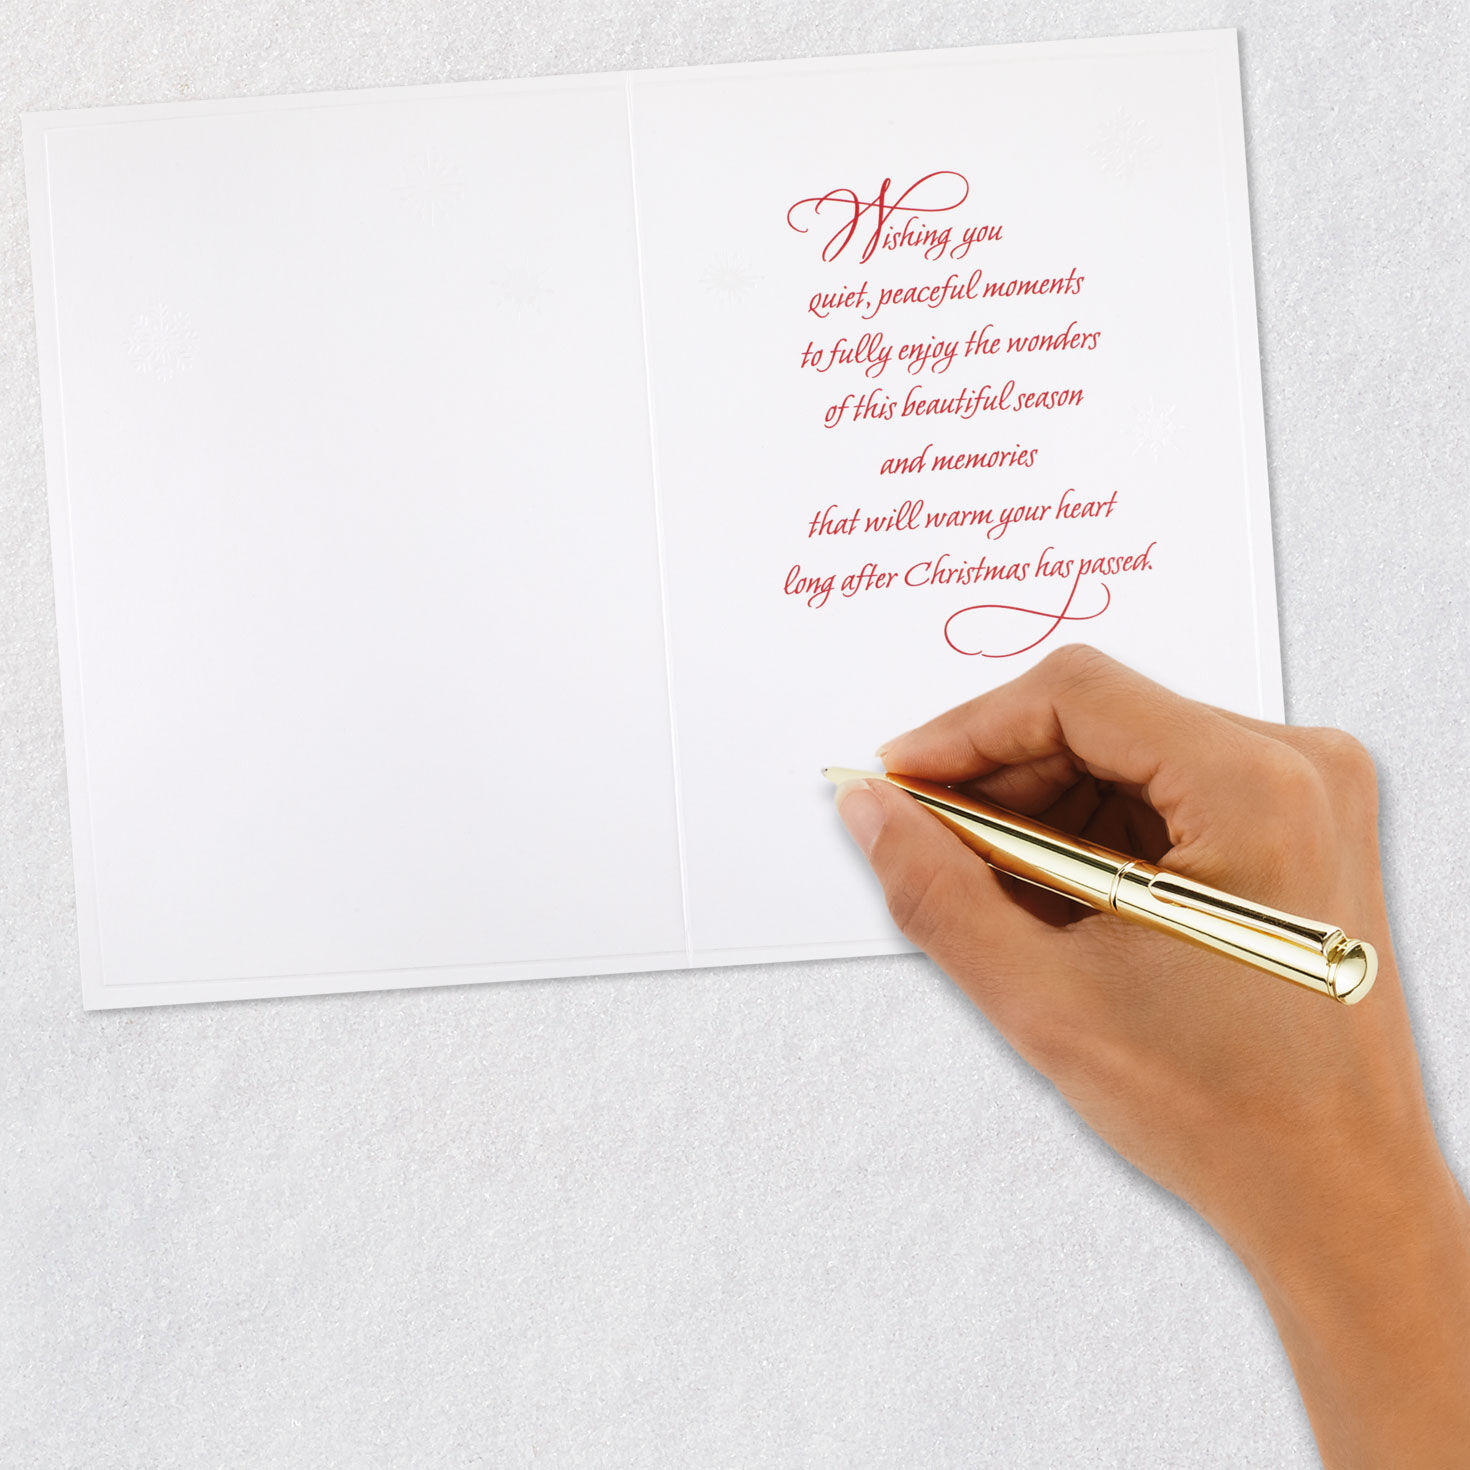 Wishing you
quiet, peaceful moments
to fully enjoy the wonders
of this beautiful season
and memories
that will warm your heart
long after Christmas has passed.